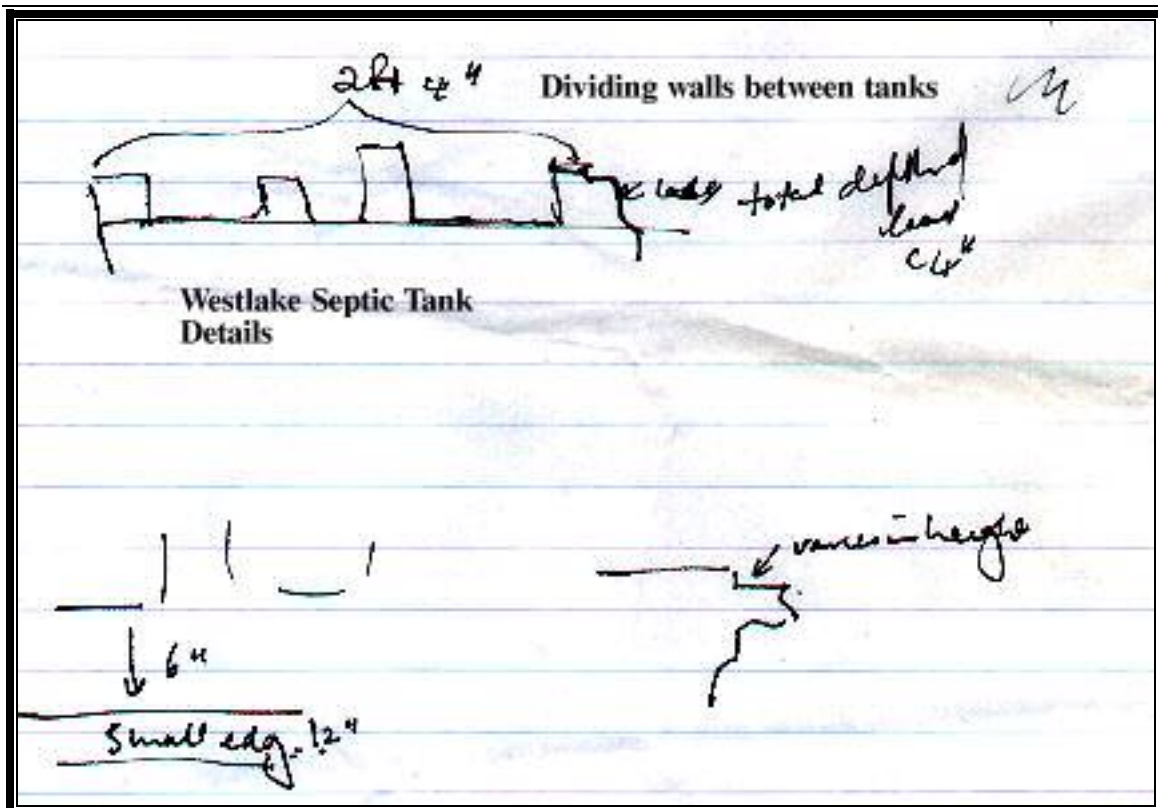 2ft 4"
Dividing walls between tanks
total depth
4"
Westlake Septic Tank
Details
varies in height
6"
Small edg. 12"